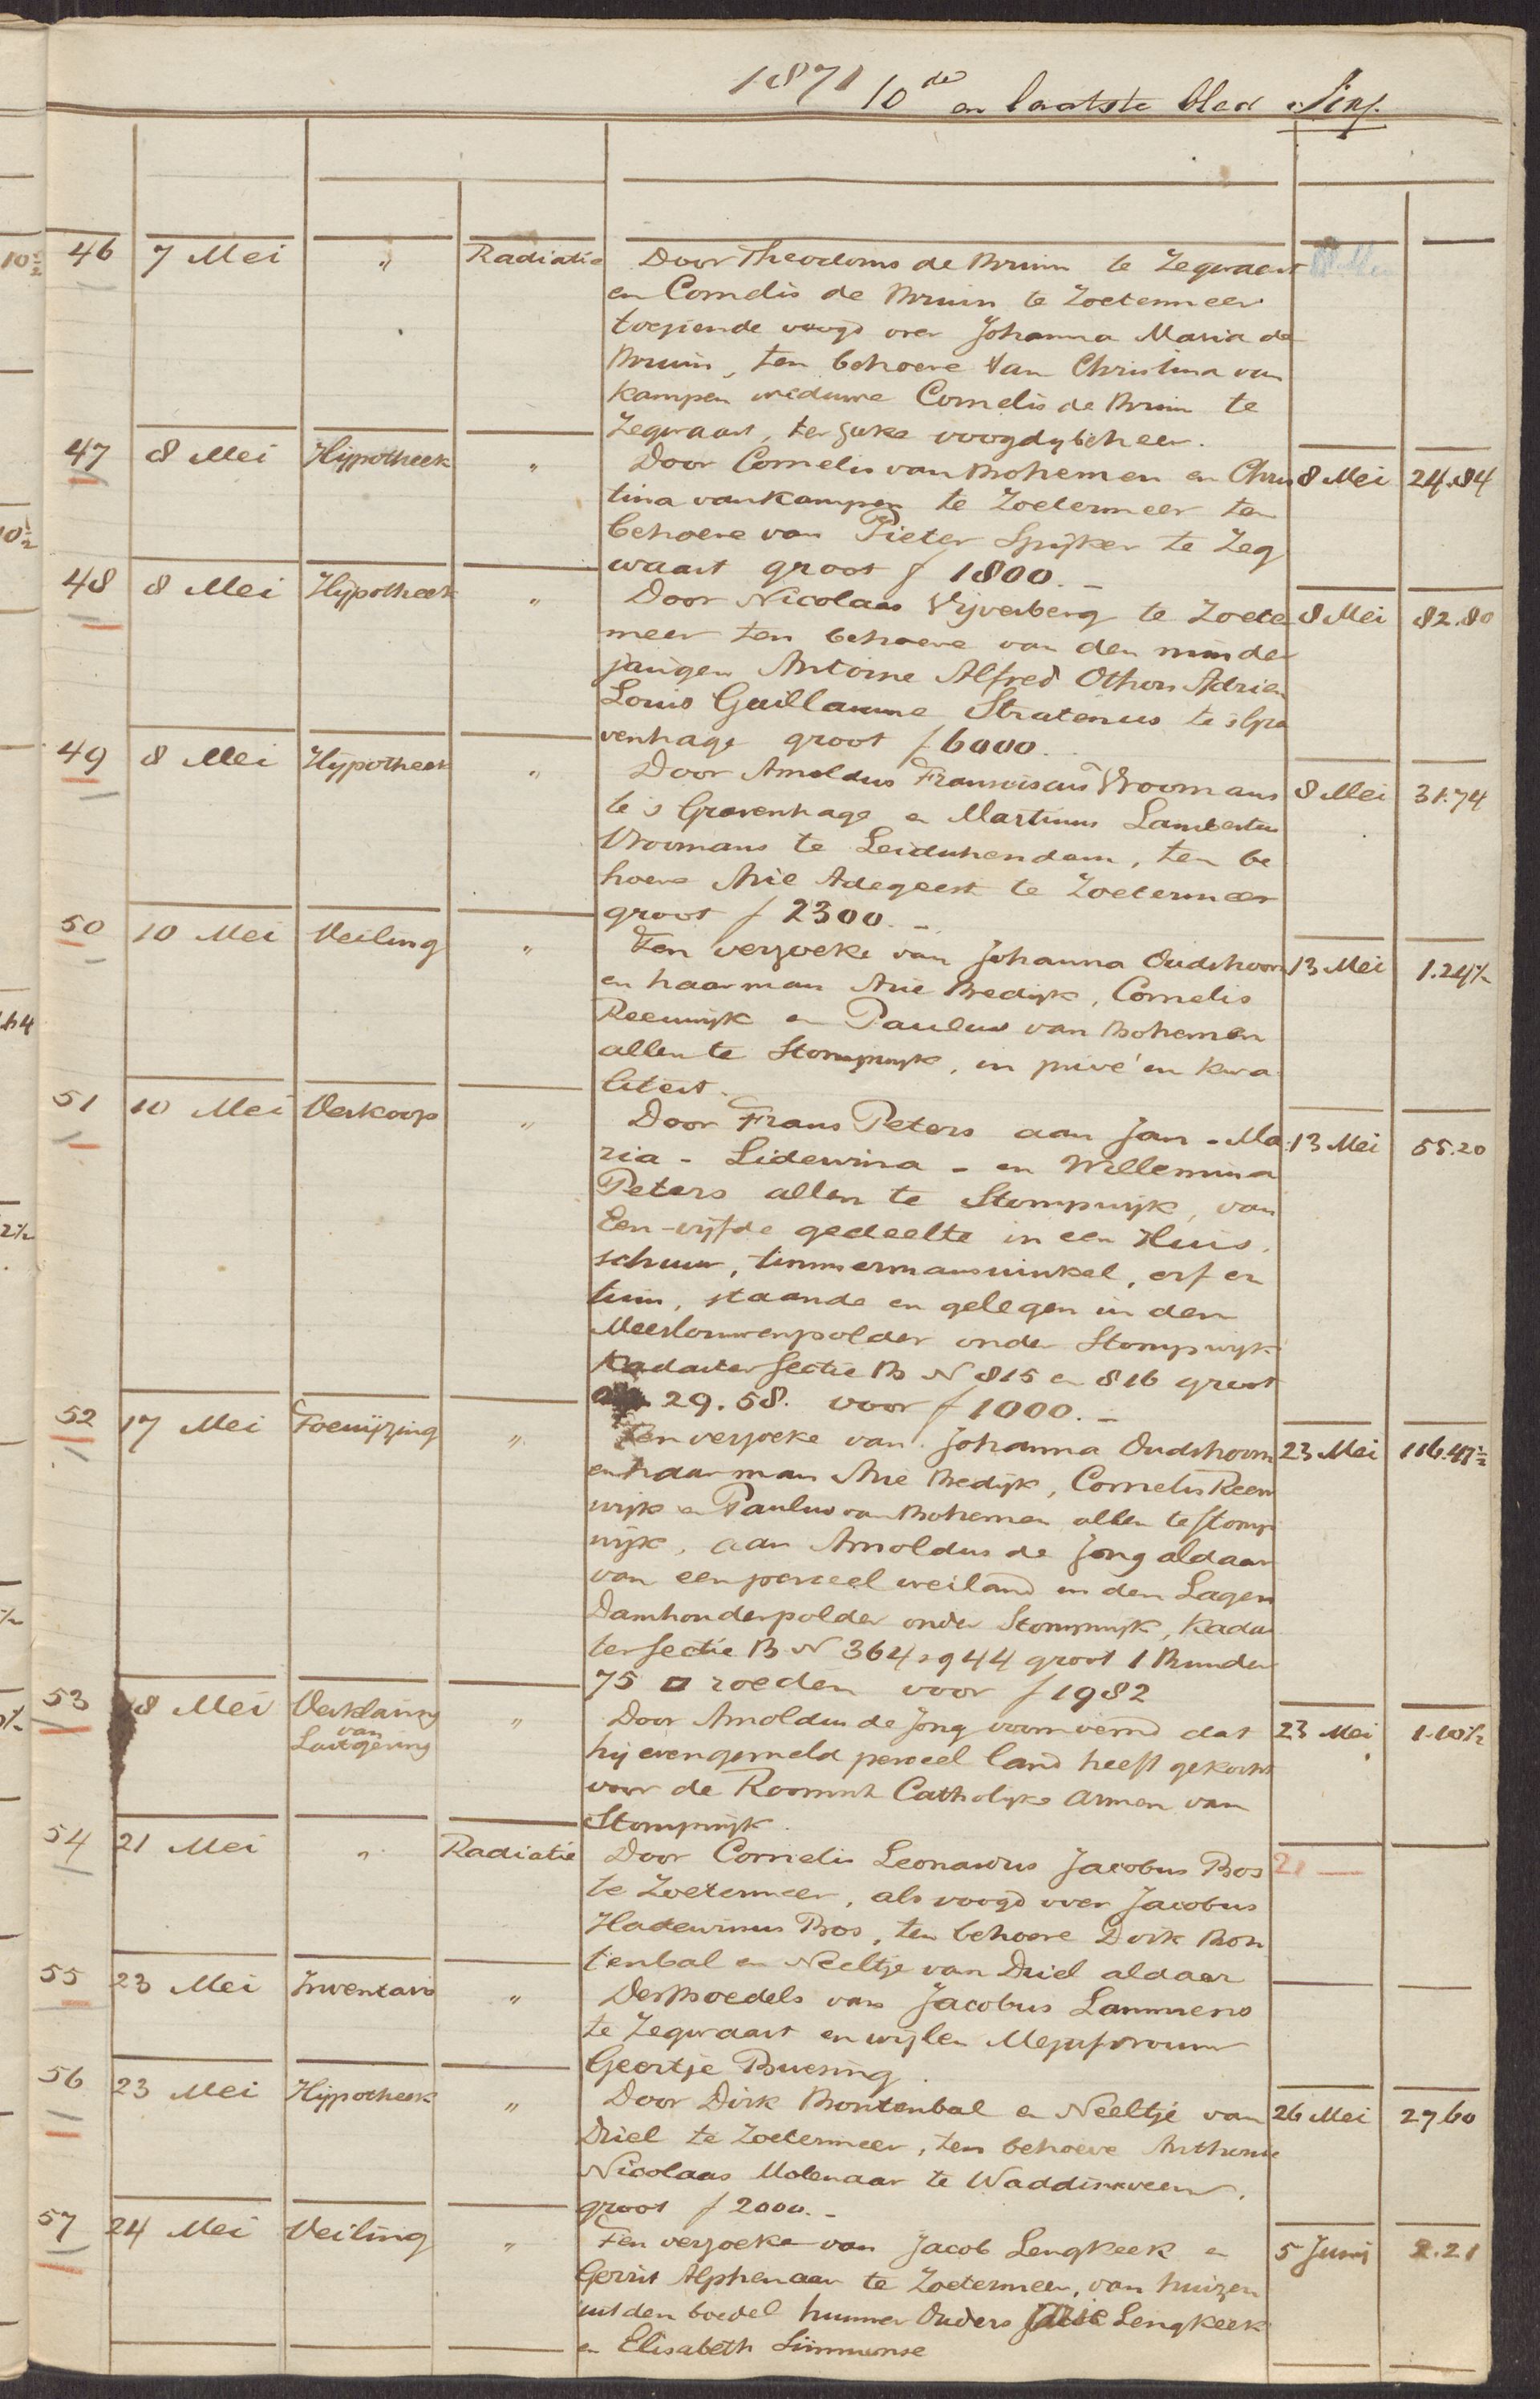 1871 10de en laatste blad
46 7 Mei " Radiatie Door Theodorus de Bruin te Zegwaart
en Cornelis de Bruin te Zoetermeer
toeziende voogd over Johanna Maria de
Bruin, ten behoeve van Christina van
Kampen weduwe Cornelis de Bruin te
Zegwaart, ter zake voogdijbeheer.
47 8 Mei Hijpotheek " Door Cornelis van Bohemen en Chris 8 Mei 24.84
tina van Kampen te Zoetermeer ten
behoeve van Pieter Spijker te Zeg
waart groot f 1800.-
48 8 Mei Hijpotheek " Door Nicolaas Vijverberg te Zoete 8 Mei 82.80
meer ten behoeve van den minder
jarigen Antoine Alfred Othon Adrien
Louis Guillaume Stratenus te 'sGra
venhage groot f 6000.
49 8 Mei Hypotheek " Door Arnoldus Franciscus Vroomans 8 Mei 31.74
te 's Gravenhage en Martinus Lambertus
Vroomans te Leidschendam, ten be
hoeve Arie Adegeest te Zoetermeer
groot f 2300.-
50 10 Mei Veiling " Ten verzoeke van Johanna Oudshoorn 13 Mei 1.24½
en haar man Arie Bredijk, Cornelis
Reeuwijk en Paulus van Bohemen
allen te Stompwijk, in privé en kwa
liteit.
51 10 Mei Verkoop " Door Frans Peters aan Jan - Ma 13 Mei 55.20
ria - Lidewina - en Willemina
Peters allen te Stompwijk, van
Een-vijfde gedeelte in een Huis,
schuur, timmermanswinkel, erf en
tuin, staande en gelegen in den
Meeslouwenpolder onder Stompwijk
Kadaster sectie B N 815 en 816 groot
29.58. voor f 1000.-
52 17 Mei Toewijzing " Ten verzoeke van Johanna Oudshoorn 23 Mei 116.47½
en haar man Arie Bredijk, Cornelis Reeu
wijk en Paulus van Bohemen allen te Stomp
wijk, aan Arnoldus de Jong aldaar
van een perceel weiland in den Lagen
Damhouderpolder onder Stompwijk, Kadas
ter sectie B N 364, 944 groot 1 Bunder
75 □ roeden voor f 1982
53 18 Mei Verklaring van Lastgeving " Door Arnoldus de Jong voornoemd dat 23 Mei 1.10½
hij evengemeld perceel land heeft gekocht
voor de Roomsch Catholijke Armen van
Stompwijk.
54 21 Mei " Radiatie Door Cornelis Leonardus Jacobus Bos 21 —
te Zoetermeer, als voogd over Jacobus
Hadewinus Bos, ten behoeve Dirk Bon
tenbal en Neeltje van Driel aldaar
55 23 Mei Inventaris " Des boedels van Jacobus Lammens
te Zegwaart en wijlen Mejufvrouw
Geertje Buesing.
56 23 Mei Hijpotheek " Door Dirk Bontenbal en Neeltje van 26 Mei 27.60
Driel te Zoetermeer, ten behoeve Anthonie
Nicolaas Molenaar te Waddinxveen,
groot f 2000.-
57 24 Mei Veiling " Ten verzoeke van Jacob Lengkeek en 5 Junij 2.21
Gerrit Alphenaar te Zoetermeer, van huizen
uit den boedel hunner Ouders Lengkeek
en Elisabeth Simmonse